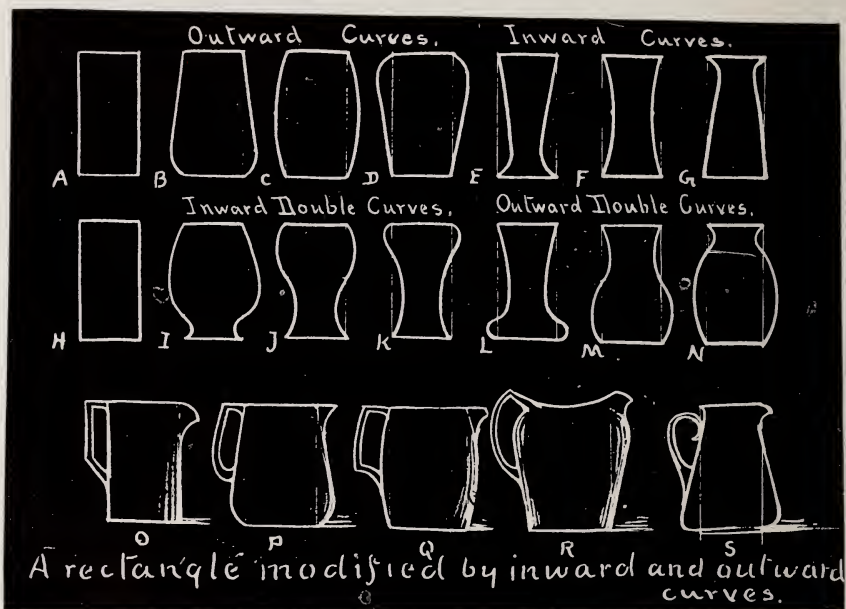 Outward Curves. Inward Curves.
A B C D E F G
Inward Double Curves. Outward Double Curves.
H I J K L M N
O P Q R S
A rectangle modified by inward and outward
curves.